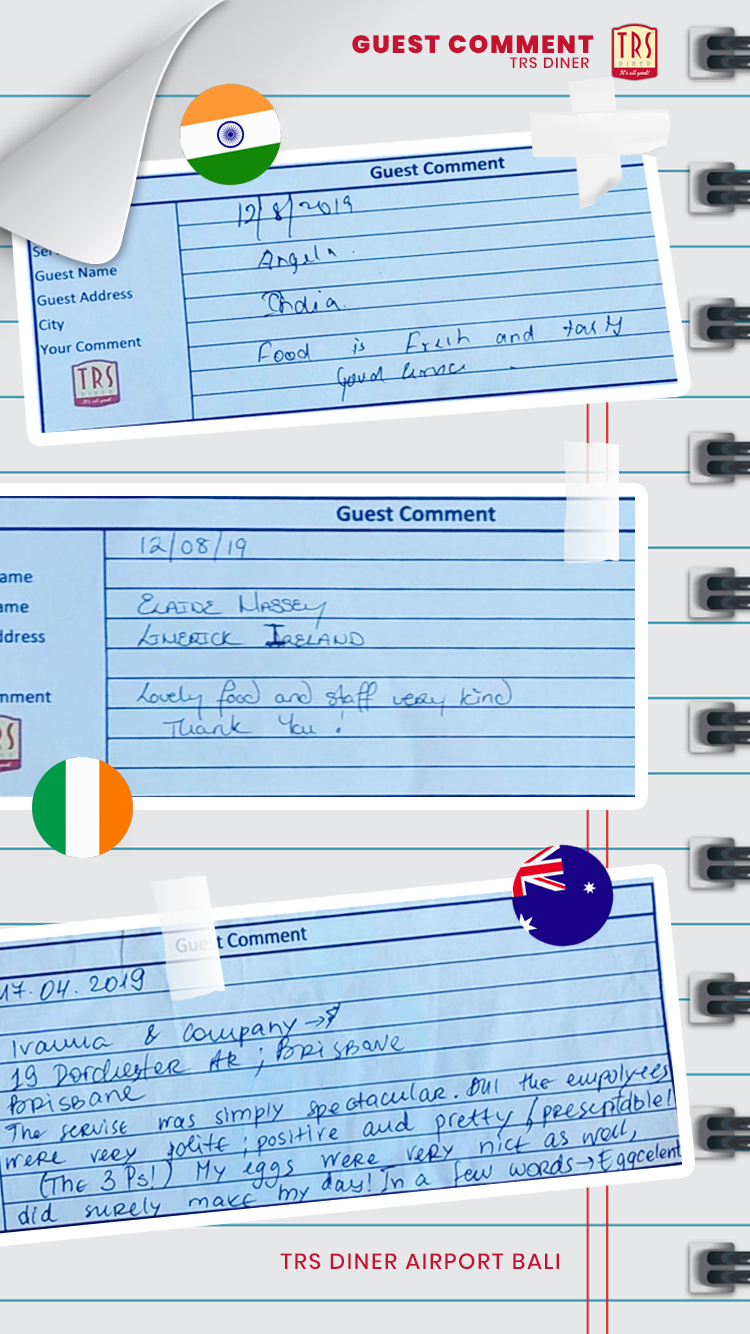 GUEST COMMENT
TRS DINER
TRS
DINER
It's all good!
Guest Comment
12/8/2019
Guest Name
Angela.
Guest Address
India.
City
Your Comment
Food is Fresh and tasty
Good service.
TRS
DINER
It's all good!
Guest Comment
12/08/19
ame
ame
ELAINE MASSEY
ddress
LIMERICK IRELAND
mment
Lovely food and staff very kind
Thank You!
Guest Comment
17.04.2019
& company →
19 Dorchester ; BRISBANE
BRISBANE
The servise was simply spectacular. All the empolyees
were very polite; positive and pretty / presentable!
(The 3 Ps!) My eggs were very nice as well,
did surely make my day! In a few words → Eggcelent
TRS DINER AIRPORT BALI